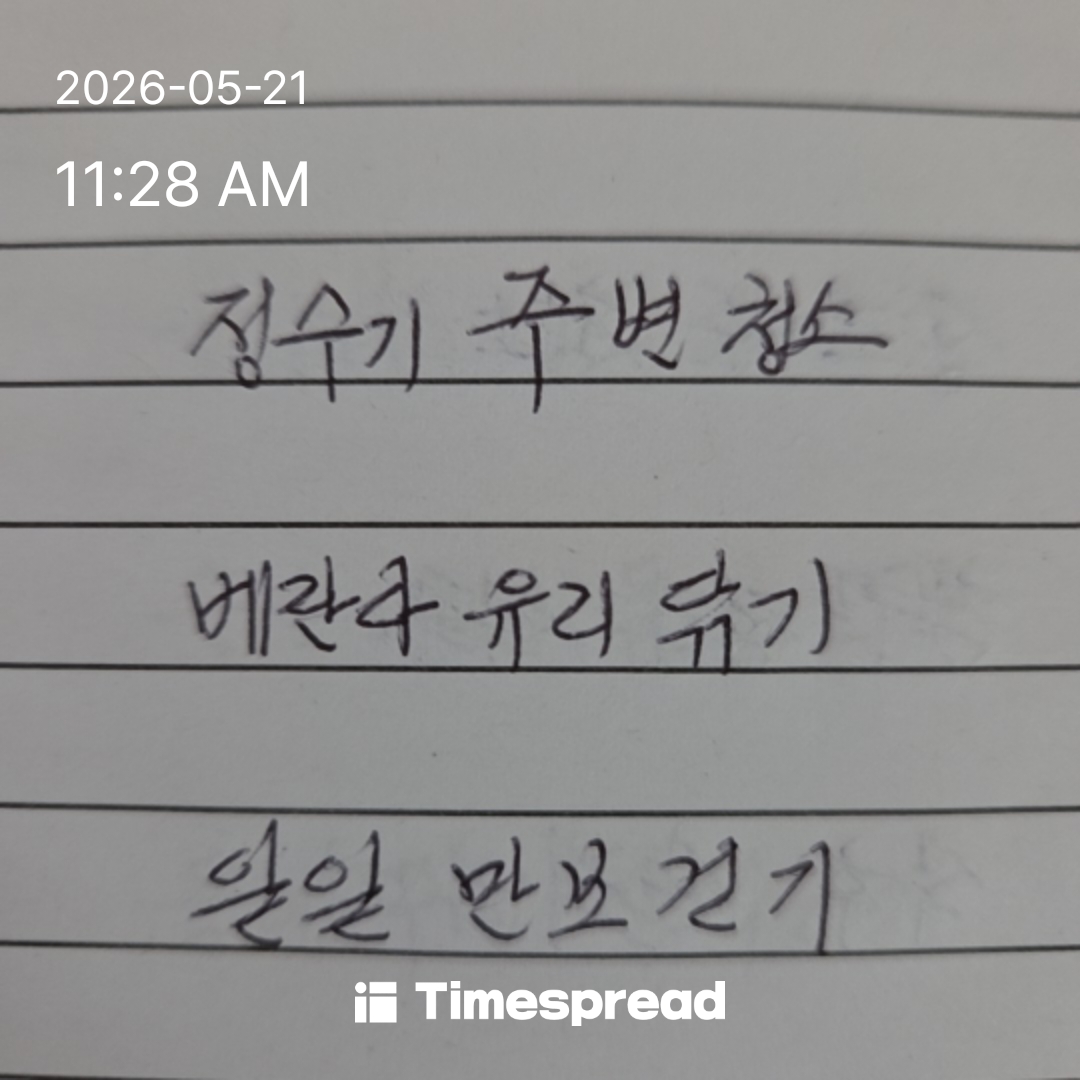 2026-05-21
11:28 AM
정수기 주변 청소
베란다 유리 닦기
일일 만보 걷기
Timespread